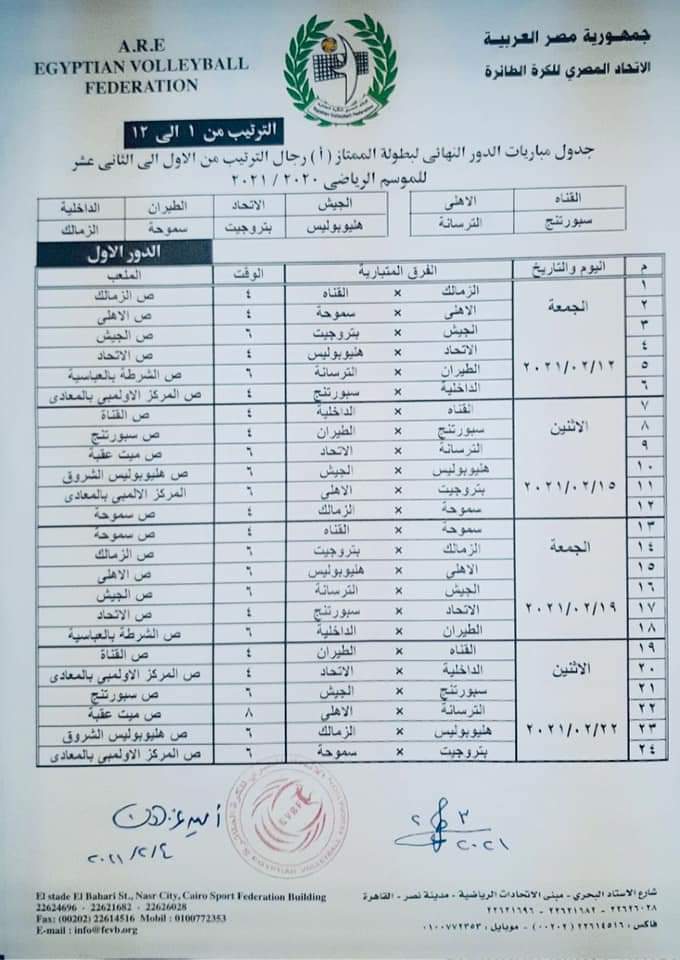 جمهورية مصر العربية
الاتحاد المصري للكرة الطائرة
A.R.E
EGYPTIAN VOLLEYBALL
FEDERATION
الترتيب من ١ الى ١٢
جدول مباريات الدور النهائى لبطولة الممتاز (أ) رجال الترتيب من الاول الى الثانى عشر
للموسم الرياضى ٢٠٢٠ / ٢٠٢١
القناه الاهلى الجيش الاتحاد الطيران الداخلية
سبورتنج الترسانة هليوبوليس بتروجيت سموحة الزمالك
الدور الاول
م اليوم والتاريخ الفرق المتبارية الوقت الملعب
١ الجمعة ٢٠٢١/٠٢/١٢ الزمالك × القناه ٤ ص الزمالك
٢ الاهلى × سموحة ٤ ص الاهلى
٣ الجيش × بتروجيت ٦ ص الجيش
٤ الاتحاد × هليوبوليس ٤ ص الاتحاد
٥ الطيران × الترسانة ٦ ص الشرطة بالعباسية
٦ الداخلية × سبورتنج ٤ ص المركز الاولمبي بالمعادى
٧ الاثنين ٢٠٢١/٠٢/١٥ القناه × الداخلية ٤ ص القناة
٨ سبورتنج × الطيران ٤ ص سبورتنج
٩ الترسانة × الاتحاد ٦ ص ميت عقبة
١٠ هليوبوليس × الجيش ٦ ص هليوبوليس الشروق
١١ بتروجيت × الاهلى ٦ المركز الالمبي بالمعادى
١٢ سموحة × الزمالك ٤ ص سموحة
١٣ الجمعة ٢٠٢١/٠٢/١٩ سموحة × القناه ٤ ص سموحة
١٤ الزمالك × بتروجيت ٦ ص الزمالك
١٥ الاهلى × هليوبوليس ٦ ص الاهلى
١٦ الجيش × الترسانة ٦ ص الجيش
١٧ الاتحاد × سبورتنج ٤ ص الاتحاد
١٨ الطيران × الداخلية ٦ ص الشرطة بالعباسية
١٩ الاثنين ٢٠٢١/٠٢/٢٢ القناه × الطيران ٤ ص القناة
٢٠ الداخلية × الاتحاد ٤ ص المركز الاولمبي بالمعادى
٢١ سبورتنج × الجيش ٦ ص سبورتنج
٢٢ الترسانة × الاهلى ٨ ص ميت عقبة
٢٣ هليوبوليس × الزمالك ٦ ص هليوبوليس الشروق
٢٤ بتروجيت × سموحة ٦ ص المركز الاولمبي بالمعادى
EVBF
٢٠٢١/٢/٤
٢٠٢١
شارع الاستاد البحري - مبنى الاتحادات الرياضية - مدينة نصر - القاهرة
٢٢٦٢١٦٩٦ - ٢٢٦٢١٦٨٢ - ٢٢٦٢٦٠٢٨
فاكس : ٢٢٦١٤٥١٦ (٠٠٢٠٢) - موبايل : ٠١٠٠٧٧٢٣٥٣
El stade El Bahari St., Nasr City, Cairo Sport Federation Building
22624696 - 22621682 - 22626028
Fax: (00202) 22614516 Mobil : 0100772353
E-mail : info@fevb.org